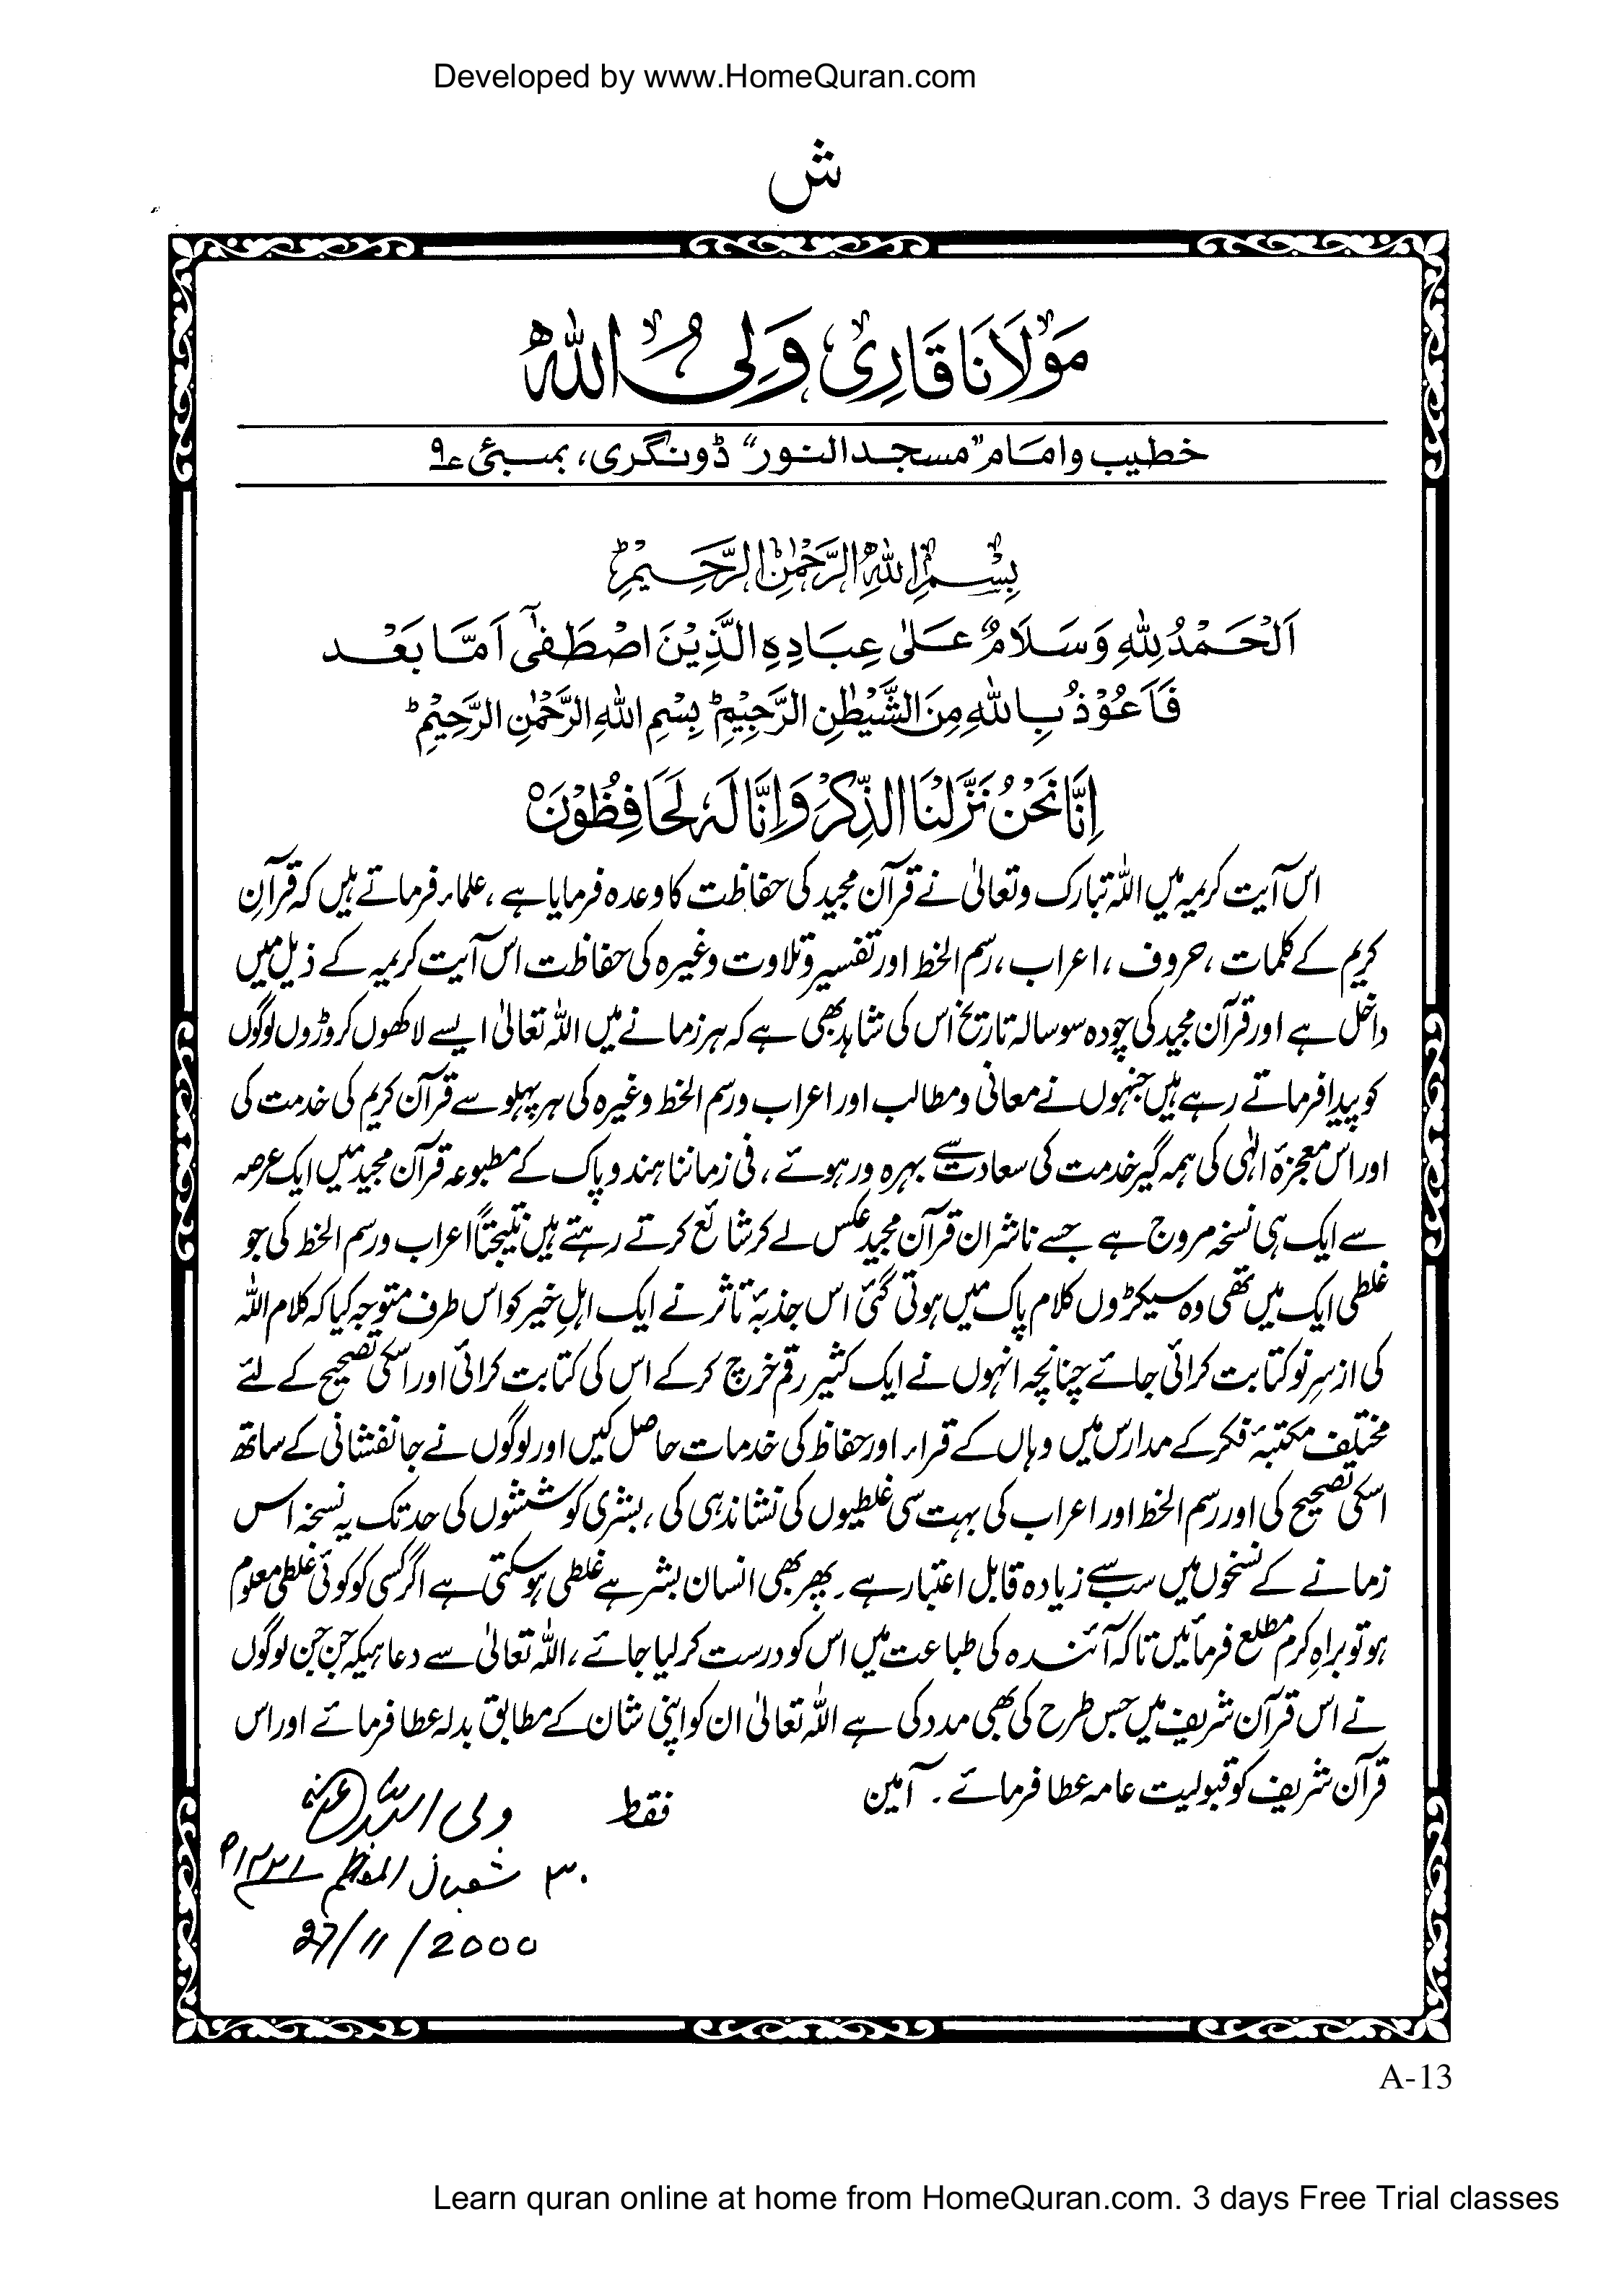 Developed by www.HomeQuran.com
ش
مَوْلَانَا قَارِیْ وَلِیُّ اللہْ
خطیب وامام "مسجد النور" ڈونگری، بمبئی ؏۹
بِسْمِ اللّٰہِ الرَّحْمٰنِ الرَّحِیْمِ ؕ
اَلْحَمْدُ لِلّٰہِ وَسَلَامٌ عَلٰی عِبَادِہِ الَّذِیْنَ اصْطَفٰٓی اَمَّا بَعْد
فَاَعُوْذُ بِاللّٰہِ مِنَ الشَّیْطٰنِ الرَّجِیْمِ ؕ بِسْمِ اللّٰہِ الرَّحْمٰنِ الرَّحِیْمِ ؕ
اِنَّا نَحْنُ نَزَّلْنَا الذِّکْرَ وَاِنَّا لَہٗ لَحَافِظُوْنَ ہ
اس آیت کریمہ میں اللہ تبارک وتعالیٰ نے قرآن مجید کی حفاظت کا وعدہ فرمایا ہے ، علماء فرماتے ہیں کہ قرآنِ
کریم کے کلمات ، حروف ، اعراب ، رسم الخط اور تفسیر و تلاوت وغیرہ کی حفاظت اس آیت کریمہ کے ذیل میں
داخل ہے اور قرآن مجید کی چودہ سو سالہ تاریخ اس کی شاہد بھی ہے کہ ہر زمانے میں اللہ تعالیٰ ایسے لاکھوں کروڑوں لوگوں
کو پیدا فرماتے رہے ہیں جنہوں نے معانی و مطالب اور اعراب ورسم الخط وغیرہ کی ہر پہلو سے قرآن کریم کی خدمت کی
اور اس معجزۂ الٰہی کی ہمہ گیر خدمت کی سعادت سے بہرہ ور ہوئے ، فی زماننا ہند و پاک کے مطبوعہ قرآن مجید میں ایک عرصہ
سے ایک ہی نسخہ مروج ہے جسے ناشران قرآن مجید عکس لے کر شائع کرتے رہتے ہیں نتیجتاً اعراب ورسم الخط کی جو
غلطی ایک میں تھی وہ سیکڑوں کلام پاک میں ہوتی گئی اس جذبۂ تأثر نے ایک اہلِ خیر کو اس طرف متوجہ کیا کہ کلام اللہ
کی از سرِ نو کتابت کرائی جائے چنانچہ انہوں نے ایک کثیر رقم خرچ کر کے اس کی کتابت کرائی اور اسکی تصحیح کے لئے
مختلف مکتبۂ فکر کے مدارس میں وہاں کے قراء اور حفاظ کی خدمات حاصل کیں اور لوگوں نے جانفشانی کے ساتھ
اسکی تصحیح کی اور رسم الخط اور اعراب کی بہت سی غلطیوں کی نشاندہی کی ، بشری کوششوں کی حد تک یہ نسخہ اس
زمانے کے نسخوں میں سب سے زیادہ قابل اعتبار ہے ۔ پھر بھی انسان بشر ہے غلطی ہو سکتی ہے اگر کسی کو کوئی غلطی معلوم
ہو تو براہِ کرم مطلع فرمائیں تاکہ آئندہ کی طباعت میں اس کو درست کر لیا جائے ، اللہ تعالیٰ سے دعا ہیکہ جن جن لوگوں
نے اس قرآن شریف میں جس طرح کی بھی مدد کی ہے اللہ تعالیٰ ان کو اپنی شان کے مطابق بدلہ عطا فرمائے اور اس
قرآن شریف کو قبولیت عامہ عطا فرمائے ۔ آمین
فقط ولی اللہ عفی عنہ
۳۰ شعبان المعظم ۱۴۲۱ھ
27/11/2000
A-13
Learn quran online at home from HomeQuran.com. 3 days Free Trial classes